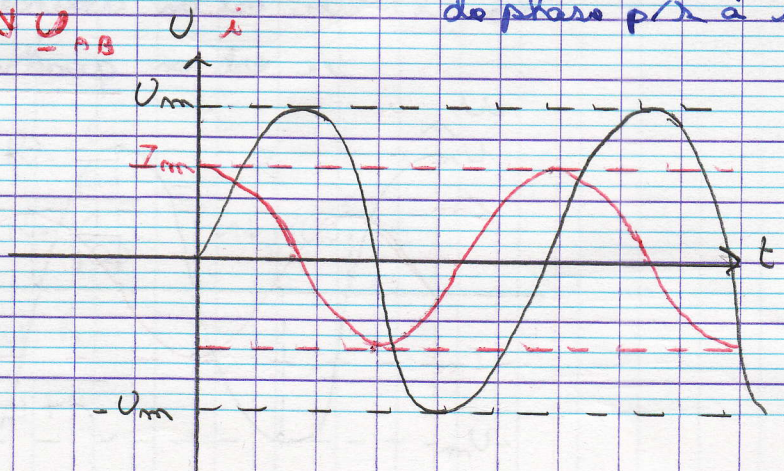 U AB
U i
de phase p/r à
Um
Im
t
-Um